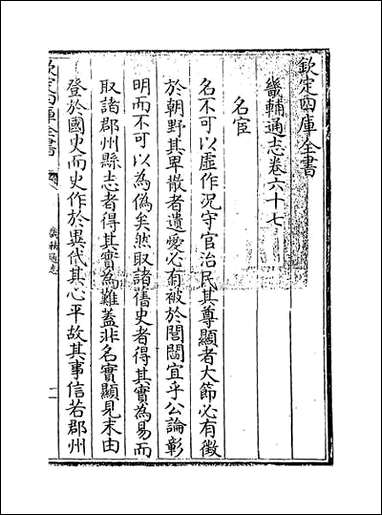 欽定四庫全書
畿輔通志卷六十七
名宦
名不可以虛作況守官治民其尊顯者大節必有徵
於朝野其卑散者遺愛必有被於閭閻宜乎公論彰
明而不可以為偽矣然取諸舊史者得其實為易而
取諸郡州縣志者得其實為難蓋非名實顯見末由
登於國史而史作於異代其心平故其事信若郡州
欽定四庫全書
畿輔通志
一